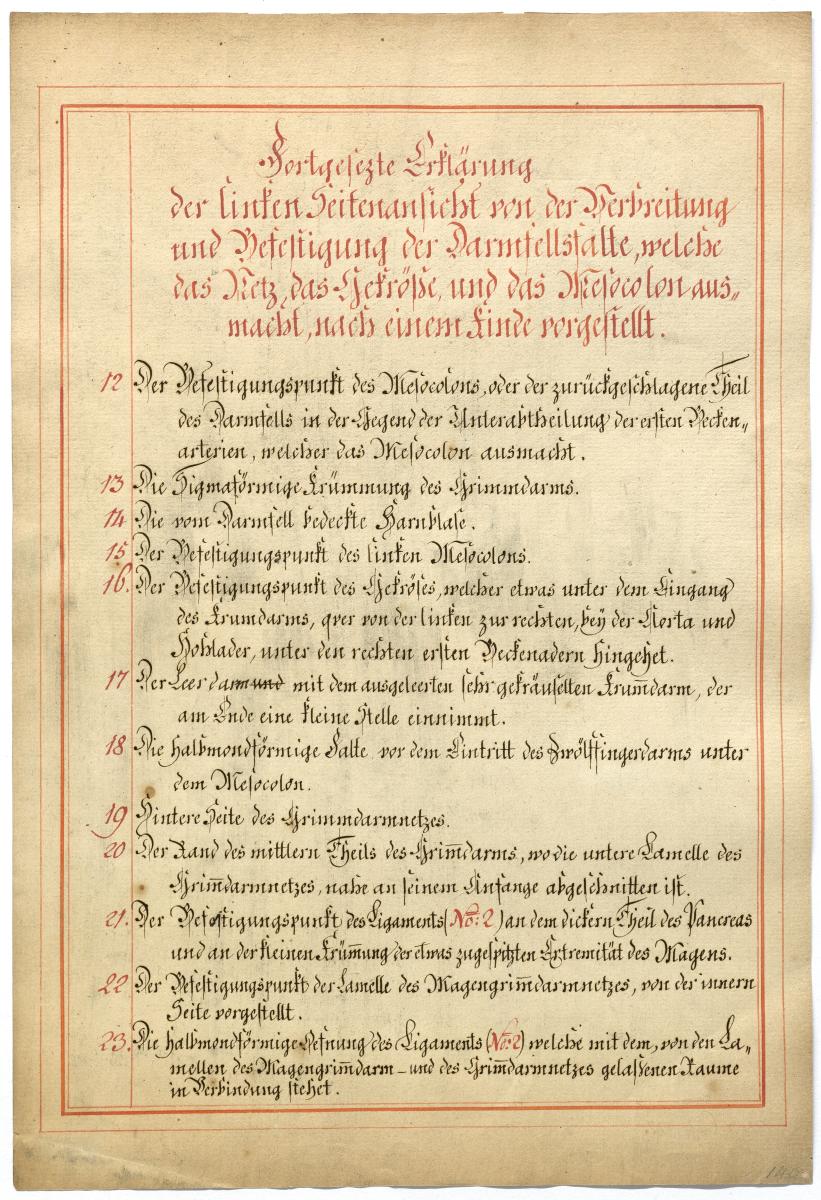 Fortgesezte Erklärung
der linken Seitenansicht von der Verbreitung
und Befestigung der Darmfellsfalte, welche
das Netz, das Gekröße, und das Mesocolon aus„
macht, nach einem Kinde vorgestellt.
12 Der Befestigungspunkt des Mesocolons, oder der zurückgeschlagene Theil
des Darmfells in der Gegend der Unterabtheilung der ersten Becken„
arterien, welcher das Mesocolon ausmacht.
13 Die Sigmaförmige Krümmung des Grimmdarms.
14 Die vom Darmfell bedeckte Harnblase.
15 Der Befestigungspunkt des linken Mesocolons.
16. Der Befestigungspunkt des Gekröses, welcher etwas unter dem Eingang
des Krumdarms, qver von der linken zur rechten, bey der Aorta und
Hohlader, unter den rechten ersten Beckenadern hingehet.
17 Der Leer darm und mit dem ausgeleerten sehr gekräuselten Krum̄darm, der
am Ende eine kleine Stelle einnimmt.
18 Die halbmondförmige Falte vor dem Eintritt des Zwölffingerdarms unter
dem Mesocolon.
19 Hintere Seite des Grimmdarmnetzes.
20 Der Rand des mittlern Theils des Grim̄darms, wo die untere Lamelle des
Grim̄darmnetzes, nahe an seinem Anfange abgeschnitten ist.
21. Der Befestigungspunkt des Ligaments (No: 2) an dem dickern Theil des Pancreas
und an der kleinen Krüm̄ung der etwas zugespitzten Extremität des Magens.
22 Der Befestigungspunkt der Lamelle des Magengrim̄darmnetzes, von der innern
Seite vorgestellt.
23. Die halbmondförmige Oefnung des Ligaments (No: 2) welche mit dem, von den La„
mellen des Magengrim̄darm- und des Grim̄darmnetzes gelaßenen Raume
in Verbindung stehet.